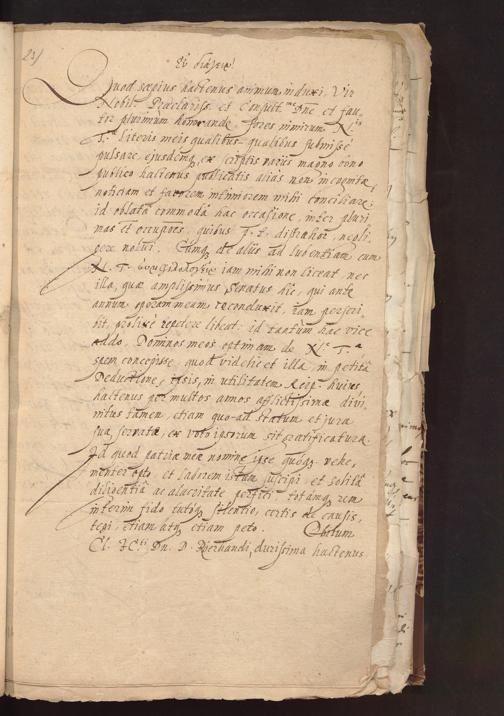 23)
Quod sæpius hactenus animum induxi, Vir
Nobil. Præclariss. et Consult.me Dne et fau-
tor plurimum honorande, fores nimirum
T. literis meis qualibus-qualibus submisse
pulsare, ejusdemq, ex scriptis variis magno
publico hactenus alias non
noticiam et favorem intimiorem mihi conciliare,
id oblata commoda hac occasione, inter pluri
mas et occupões, quibus distrahor, negli
gere nolui. Cumq de aliis ad lubentiam cum
T. iam mihi non liceat nec
illa, quæ amplissimus Senatus hic, qui ante
annum operam meam reconduxit, iam perscri
bit, prolixe repetere libeat: id tantum hac vice
addo, Dominos meos optimam de T.a
spem concepisse, quod videlicet illa, in petita
Deductione, in utilitatem Reip. huius
hactenus per multos annos afflictissimæ divi
nitus tamen, etiam quo-ad statum et jura
sua servatæ, ex voto ipsorum sit gratificatura.
Id quod patriæ meæ nomine ipse quoq vehe-
menter opto, et laborem istum suscipi et solita
diligentia ac alacritate perfici totamq rem
interim fido tutoq silentio, certis de causis,
tegi, etiam atq etiam peto. Obitum
Cl. JCti Dn. D. durissima hactenus